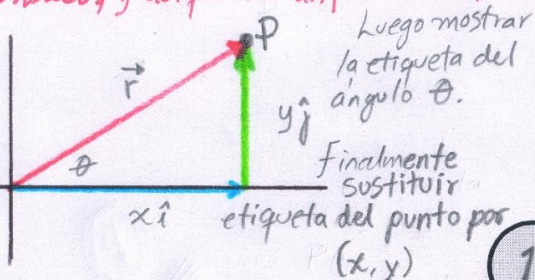 y después
P
Luego mostrar
la etiqueta del
ángulo θ.
r⃗
yĵ
θ
finalmente
sustituir
xî
etiqueta del punto por
(x, y)
1